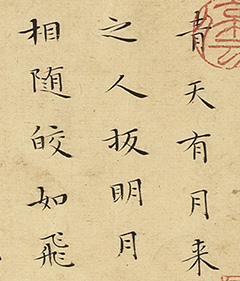 青天有月来
之人扳明月
相随皎如飛